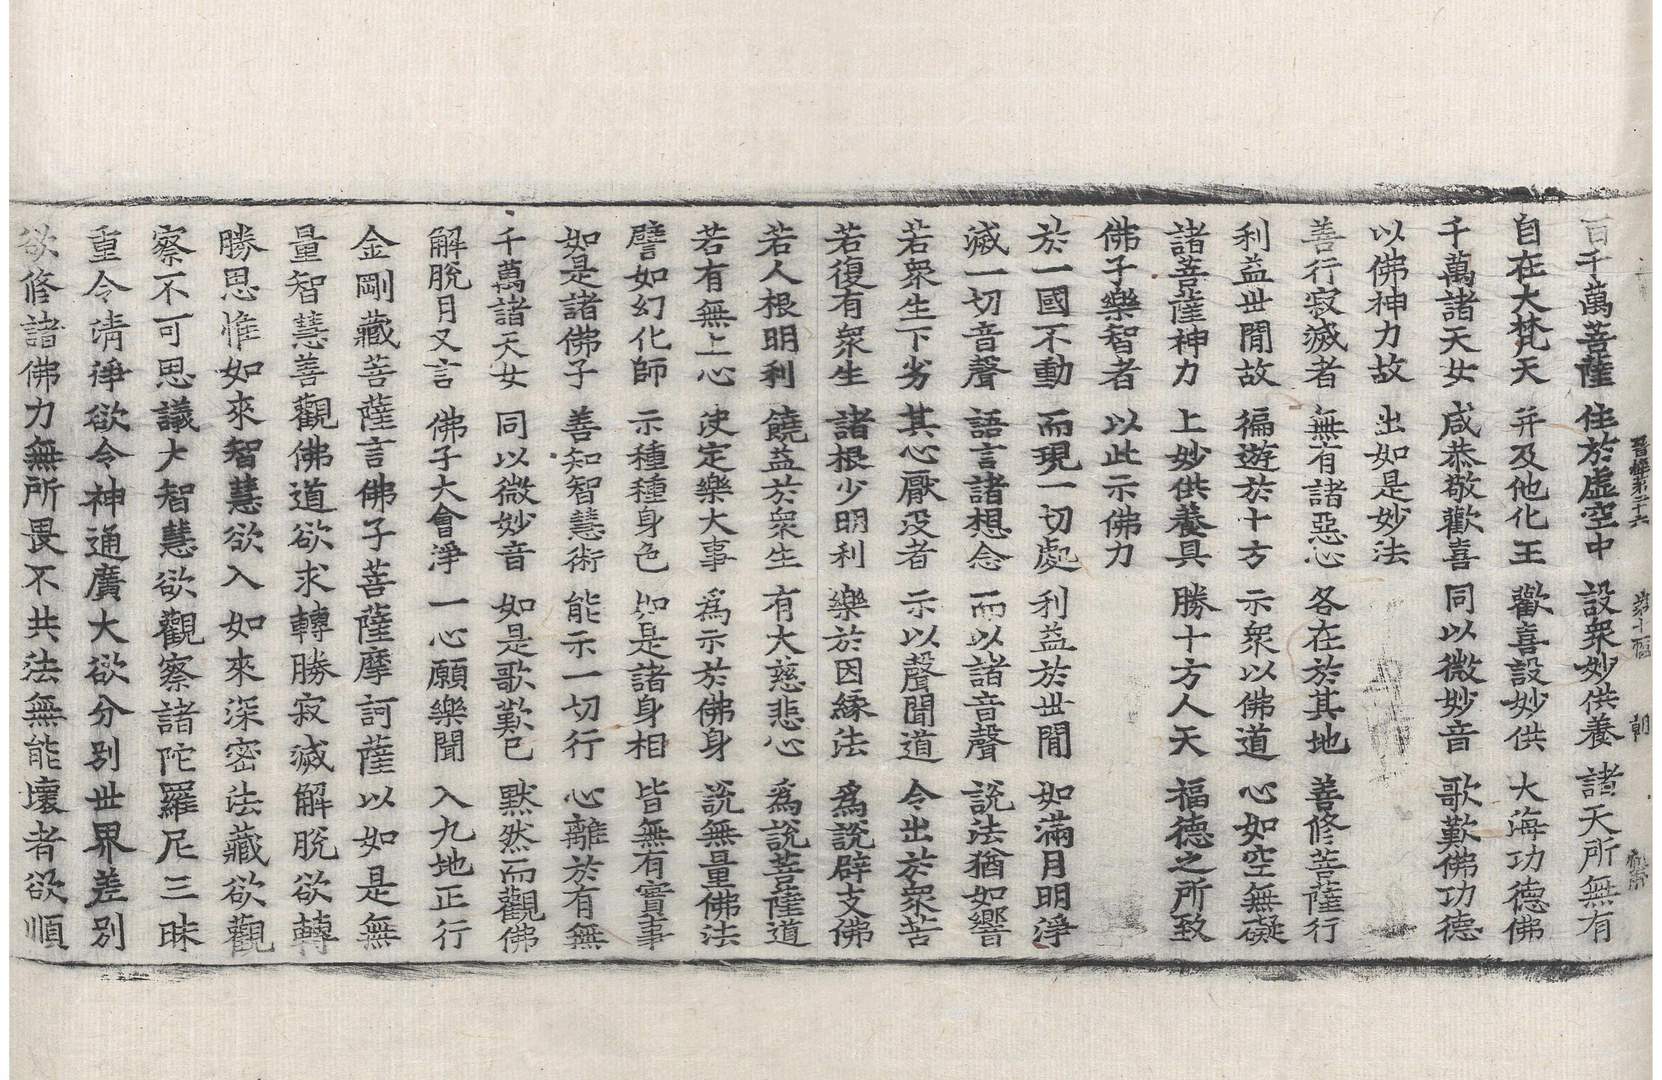 晉經第二十六 第十一幅 朝
百千萬菩薩 住於虛空中 設衆妙供養 諸天所無有
自在大梵天 并及他化王 歡喜設妙供 大海功德佛
千萬諸天女 咸恭敬歡喜 同以微妙音 歌歎佛功德
以佛神力故 出如是妙法
善行寂滅者 無有諸惡心 各在於其地 善修菩薩行
利益世閒故 徧遊於十方 示衆以佛道 心如空無礙
諸菩薩神力 上妙供養具 勝十方人天 福德之所致
佛子樂智者 以此示佛力
於一國不動 而現一切處 利益於世閒 如滿月明淨
滅一切音聲 語言諸想念 而以諸音聲 說法猶如響
若衆生下劣 其心厭没者 示以聲聞道 令出於衆苦
若復有衆生 諸根少明利 樂於因緣法 爲說辟支佛
若人根明利 饒益於衆生 有大慈悲心 爲說菩薩道
若有無上心 決定樂大事 爲示於佛身 說無量佛法
譬如幻化師 示種種身色 如是諸身相 皆無有實事
如是諸佛子 善知智慧術 能示一切行 心離於有無
千萬諸天女 同以微妙音 如是歌歎已 默然而觀佛
解脫月又言 佛子大會淨 一心願樂聞 入九地正行
金剛藏菩薩言佛子菩薩摩訶薩以如是無
量智慧善觀佛道欲求轉勝寂滅解脫欲轉
勝思惟如來智慧欲入如來深密法藏欲觀
察不可思議大智慧欲觀察諸陀羅尼三昧
重令淸淨欲令神通廣大欲分別世界差別
欲修諸佛力無所畏不共法無能壞者欲順